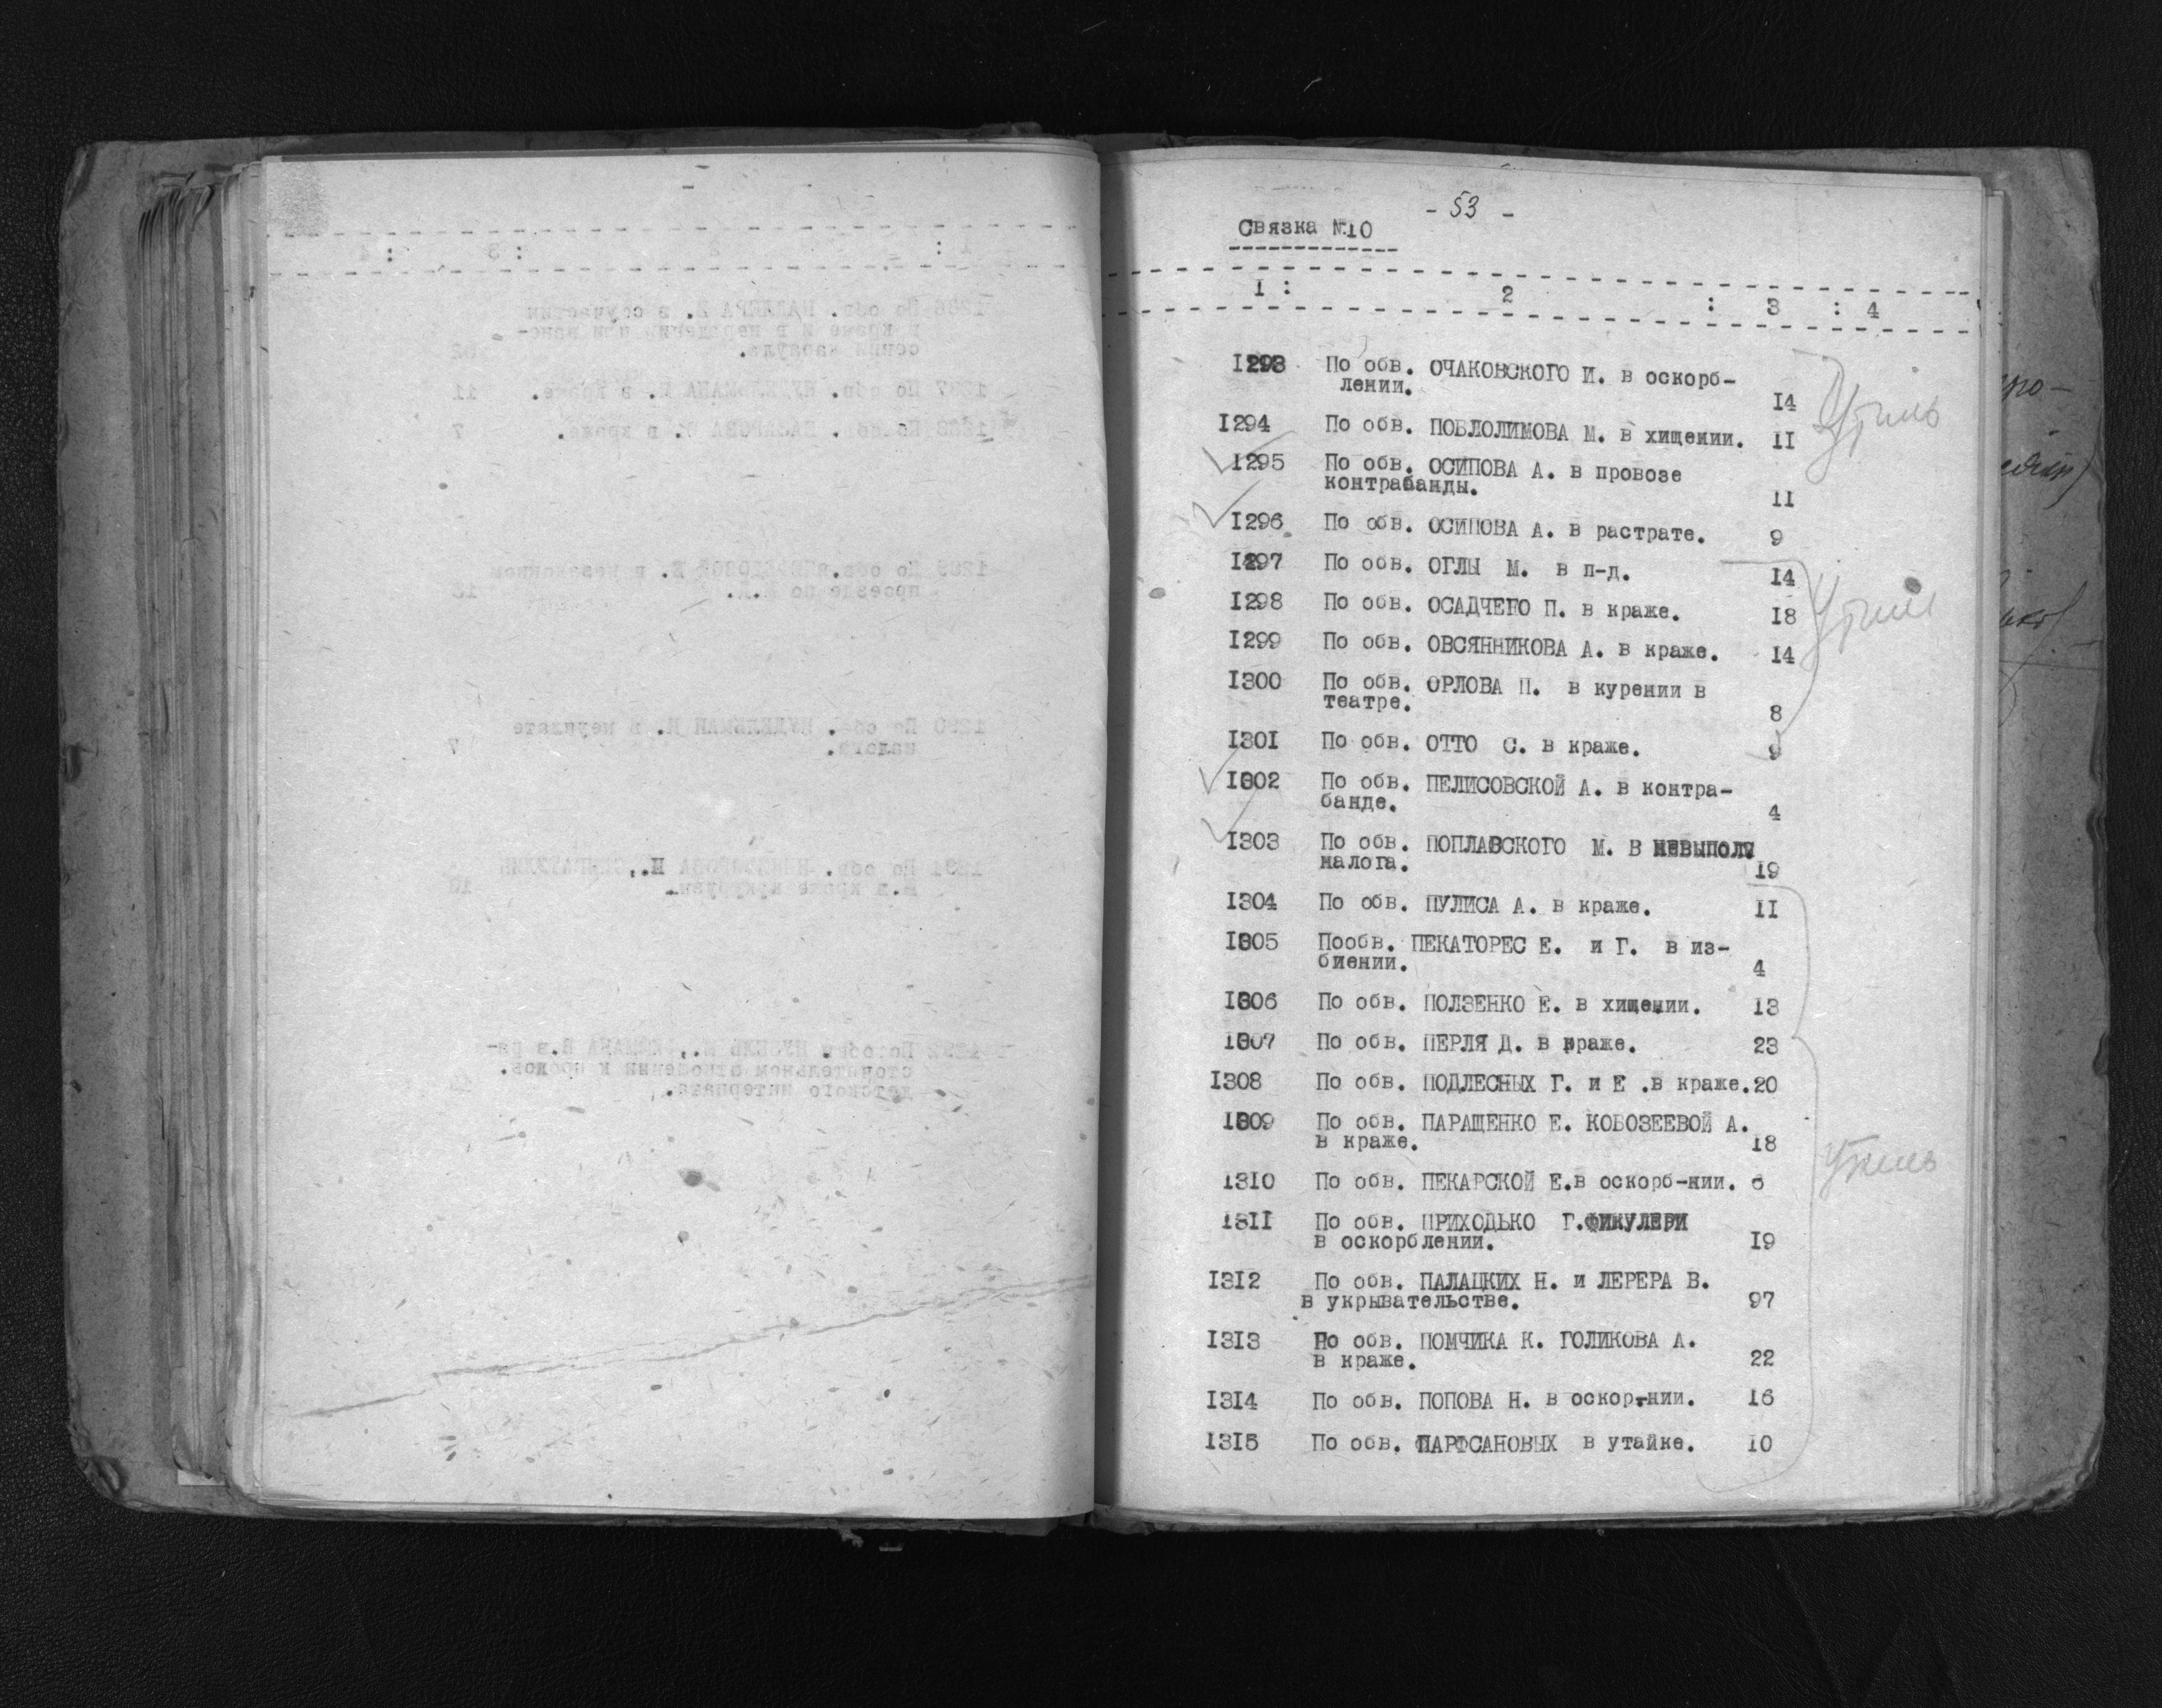 - 53 -
Связка №10
1 : 2 : 3 : 4
1293 По обв. ОЧАКОВСКОГО И. в оскорб-
лении. 14
1294 По обв. ПОБЛОЛИМОВА М. в хищении. 11
1295 По обв. ОСИПОВА А. в провозе
контрабанды. 11
1296 По обв. ОСИПОВА А. в растрате. 9
1297 По обв. ОГЛЫ М. в п-д. 14
1298 По обв. ОСАДЧЕГО П. в краже. 18
1299 По обв. ОВСЯННИКОВА А. в краже. 14
1300 По обв. ОРЛОВА П. в курении в
театре. 8
1301 По обв. ОТТО С. в краже. 9
1302 По обв. ПЕЛИСОВСКОЙ А. в контра-
банде. 4
1303 По обв. ПОПЛАВСКОГО М. В невыполч
налога. 19
1304 По обв. ПУЛИСА А. в краже. 11
1305 Пообв. ПЕКАТОРЕС Е. и Г. в из-
биении. 4
1306 По обв. ПОЛЗЕНКО Е. в хищении. 13
1307 По обв. ПЕРЛЯ Д. в краже. 23
1308 По обв. ПОДЛЕСНЫХ Г. и Е .в краже.20
1309 По обв. ПАРАЩЕНКО Е. КОБОЗЕЕВОЙ А.
в краже. 18
1310 По обв. ПЕКАРСКОЙ Е.в оскорб-нии. 6
1311 По обв. ПРИХОДЬКО Г.ФИКУЛЕРИ
в оскорблении. 19
1312 По обв. ПАЛАЦКИХ Н. и ЛЕРЕРА В.
в укрывательстве. 97
1313 По обв. ПОМЧИКА К. ГОЛИКОВА А.
в краже. 22
1314 По обв. ПОПОВА Н. в оскор-нии. 16
1315 По обв. ПАРФСАНОВЫХ в утайке. 10
Утиль
Утиль
Утиль